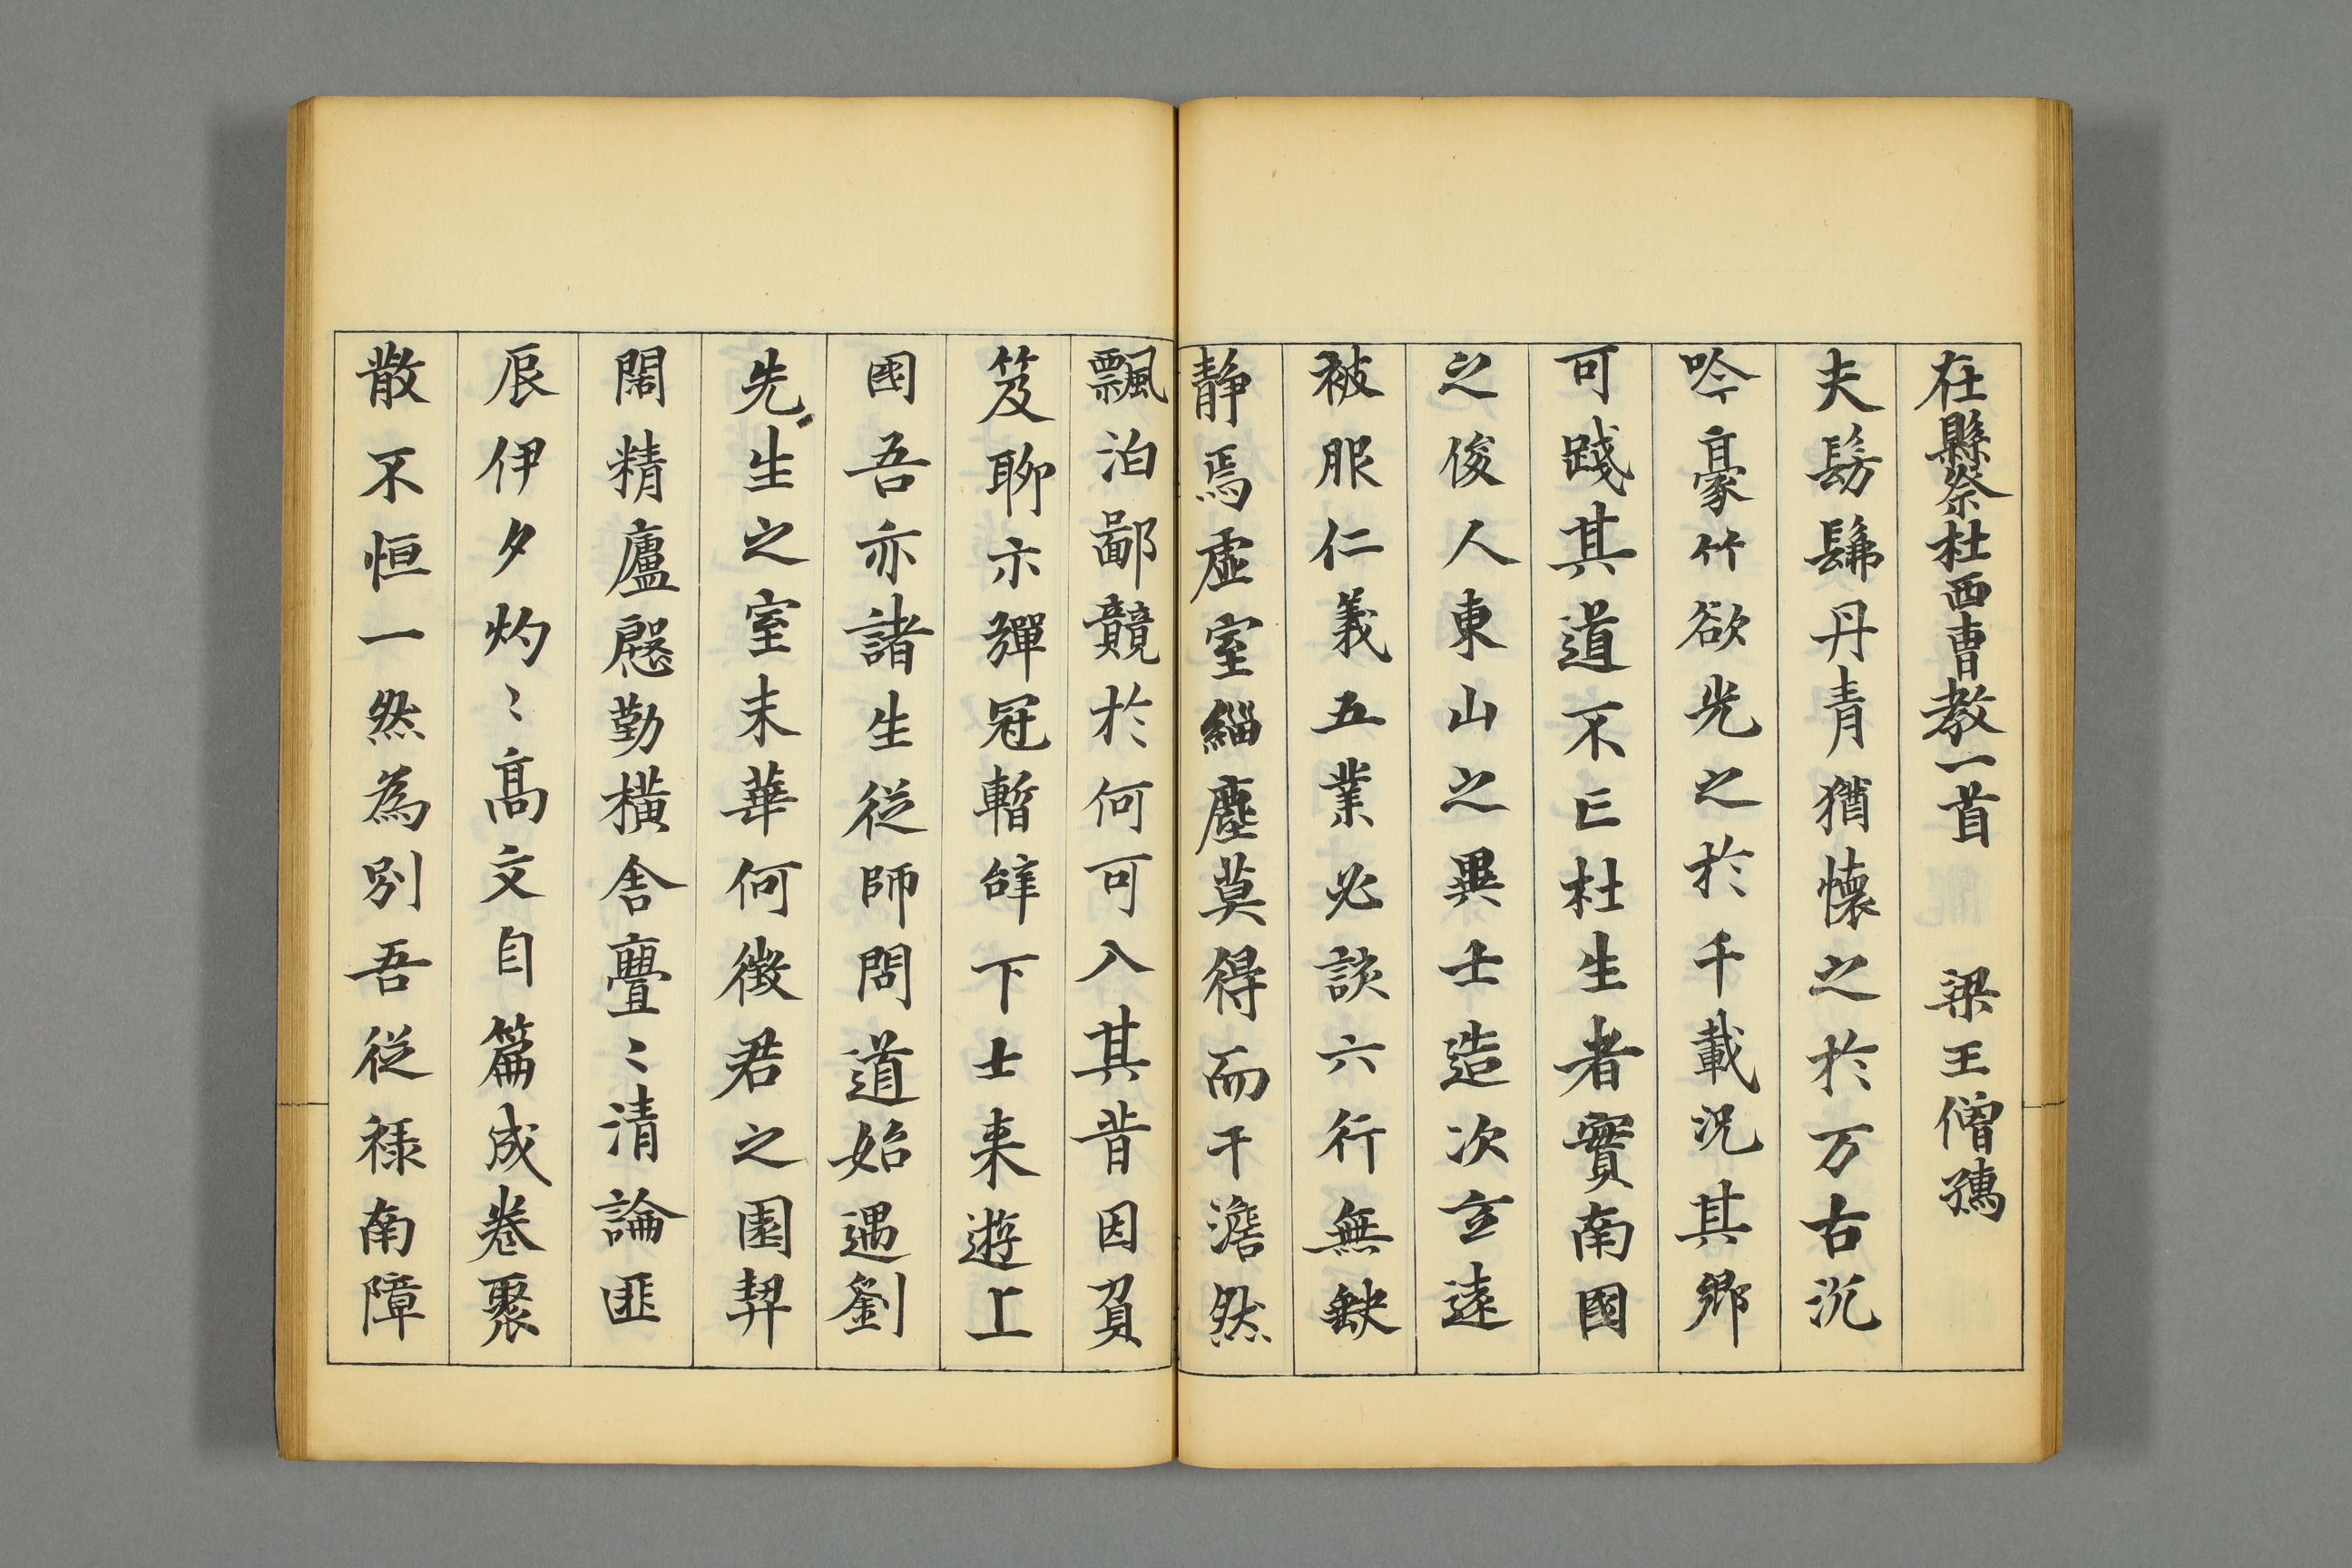 在縣祭杜西曹教一首 梁王僧孺
夫髣髴丹青猶懷之於万古沉
吟豪竹欲光之於千載況其鄉
可踐其道不亡杜生者實南國
之俊人東山之異士造次立遠
被服仁義五業必談六行無缺
静焉虛室緇塵莫得而干澹然
飄泊鄙競於何可入其昔因負
笈聊示彈冠暫辭下士来遊上
國吾亦諸生從師問道始遇劉
先生之室末華何徵君之園契
闊精廬慇勤横舎亹〻清論匪
辰伊夕灼〻髙文自篇成卷聚
散不恒一然為別吾從禄南障